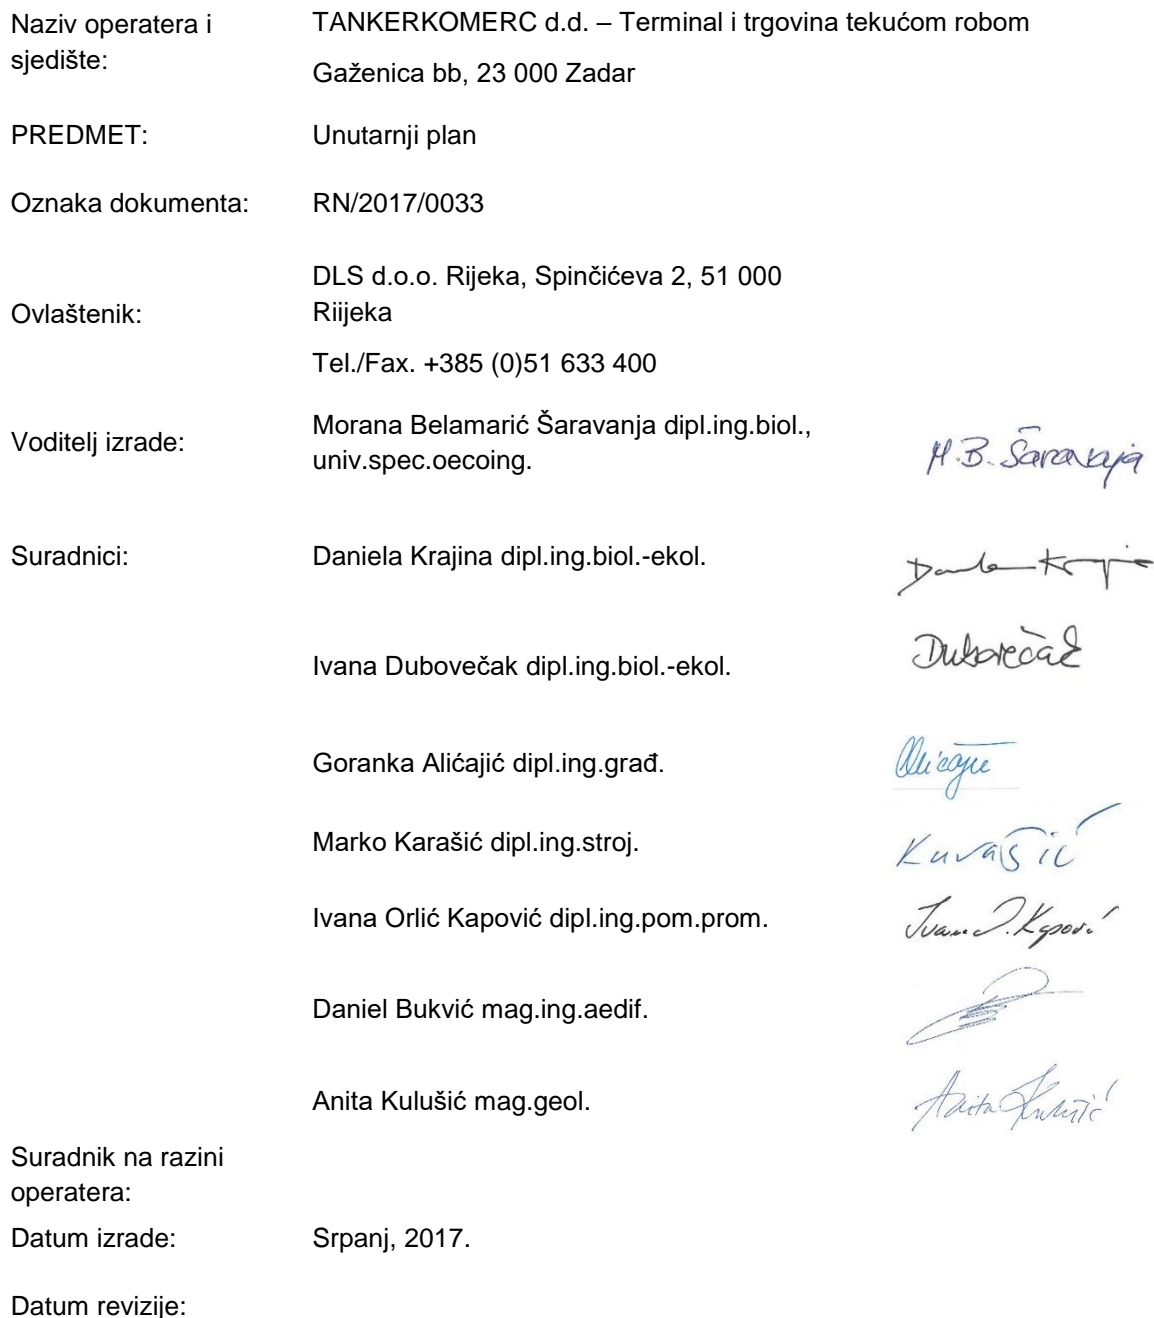 Naziv operatera i
sjedište:
TANKERKOMERC d.d. – Terminal i trgovina tekućom robom
Gaženica bb, 23 000 Zadar
PREDMET:
Unutarnji plan
Oznaka dokumenta:
RN/2017/0033
Ovlaštenik:
DLS d.o.o. Rijeka, Spinčićeva 2, 51 000
Riijeka
Tel./Fax. +385 (0)51 633 400
Voditelj izrade:
Morana Belamarić Šaravanja dipl.ing.biol.,
univ.spec.oecoing.
M.B. Šaravanja
Suradnici:
Daniela Krajina dipl.ing.biol.-ekol.
Ivana Dubovečak dipl.ing.biol.-ekol.
Dubovečak
Goranka Alićajić dipl.ing.građ.
Marko Karašić dipl.ing.stroj.
Ivana Orlić Kapović dipl.ing.pom.prom.
Daniel Bukvić mag.ing.aedif.
Anita Kulušić mag.geol.
Anita Kulušić
Suradnik na razini
operatera:
Datum izrade:
Srpanj, 2017.
Datum revizije: